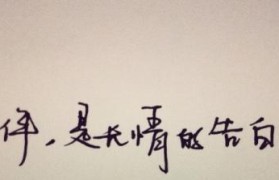 伴，是长情的告白